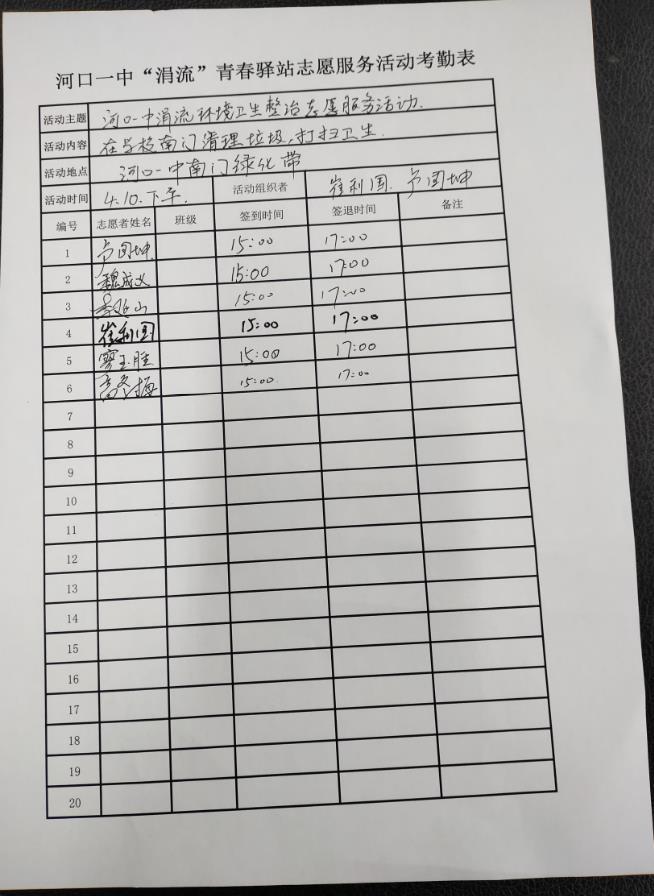 河口一中“涓流”青春驿站志愿服务活动考勤表
活动主题 河口一中涓流环境卫生整治志愿服务活动.
活动内容 在学校南门清理垃圾,打扫卫生.
活动地点 河口一中南门绿化带
活动时间 4.10.下午. 活动组织者 崔利国. 卢国坤
编号 志愿者姓名 班级 签到时间 签退时间 备注
1 卢国坤 15:00 17:00
2 魏成义 15:00 17:00
3 15:00 17:00
4 崔利国 15:00 17:00
5 玉胜 15:00 17:00
6 高冬梅 15:00 17:00
7
8
9
10
11
12
13
14
15
16
17
18
19
20